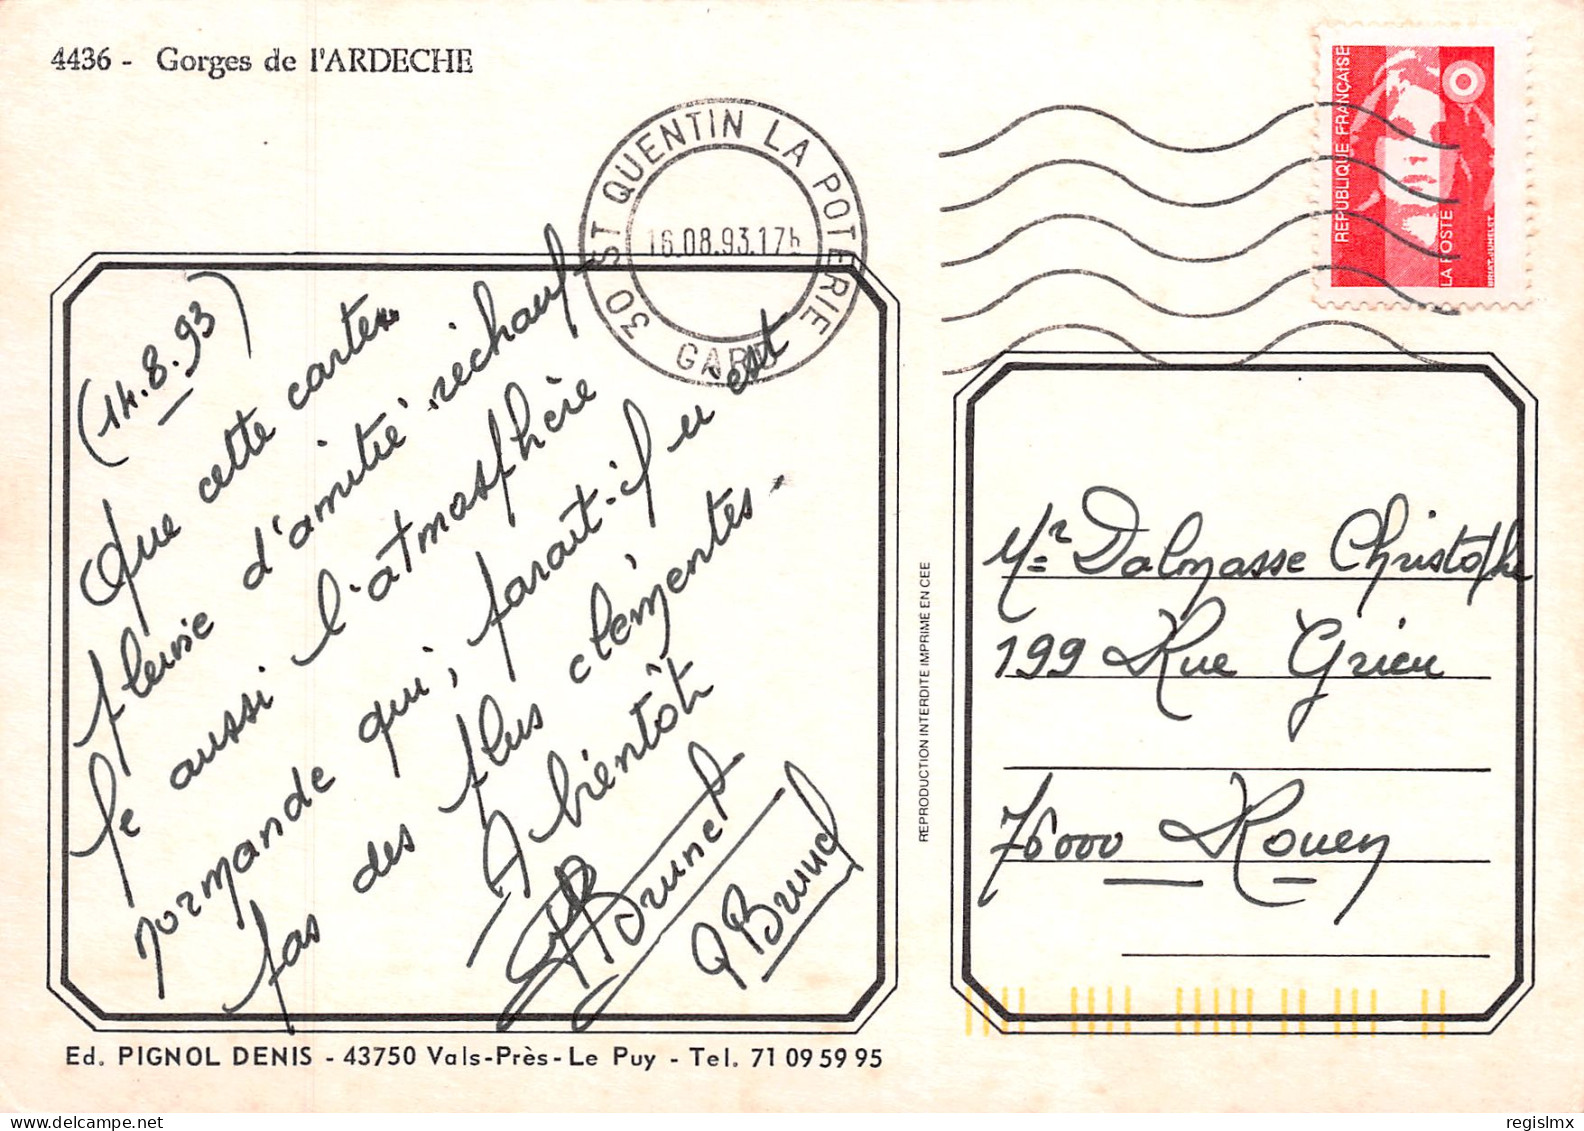 4436 - Gorges de l'ARDECHE
30 ST QUENTIN LA POTERIE
16.08.93.17h
GARD
REPUBLIQUE FRANÇAISE
LA POSTE
(14.8.93)
Que cette carte
pleine d'amitié réchauf-
fe aussi l'atmosphère
normande qui, parait-il n'est
pas des plus clémentes.
A bientôt
Brunel
P Brunel
REPRODUCTION INTERDITE IMPRIME EN CEE
Mr Dalmasse Christophe
199 Rue Grieu
76000 Rouen
Ed. PIGNOL DENIS - 43750 Vals-Près-Le Puy - Tel. 71 09 59 95
regislmx